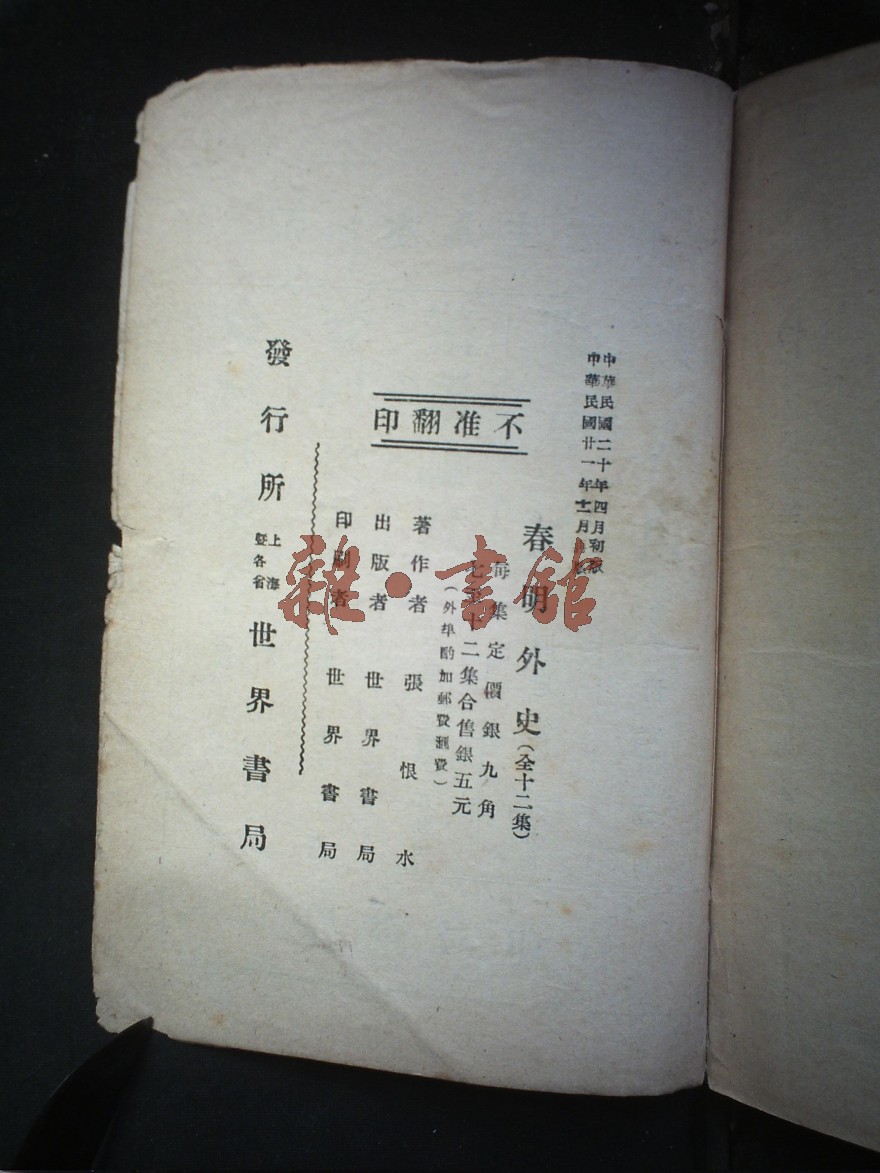 中華民國二十年四月初版
中華民國廿一年十二月
不准翻印
春明外史（全十二集）
每集定價銀九角
十二集合售銀五元
（外埠酌加郵費滙費）
著作者 張恨水
出版者 世界書局
印刷者 世界書局
發行所 上海暨各省 世界書局
雜·書館